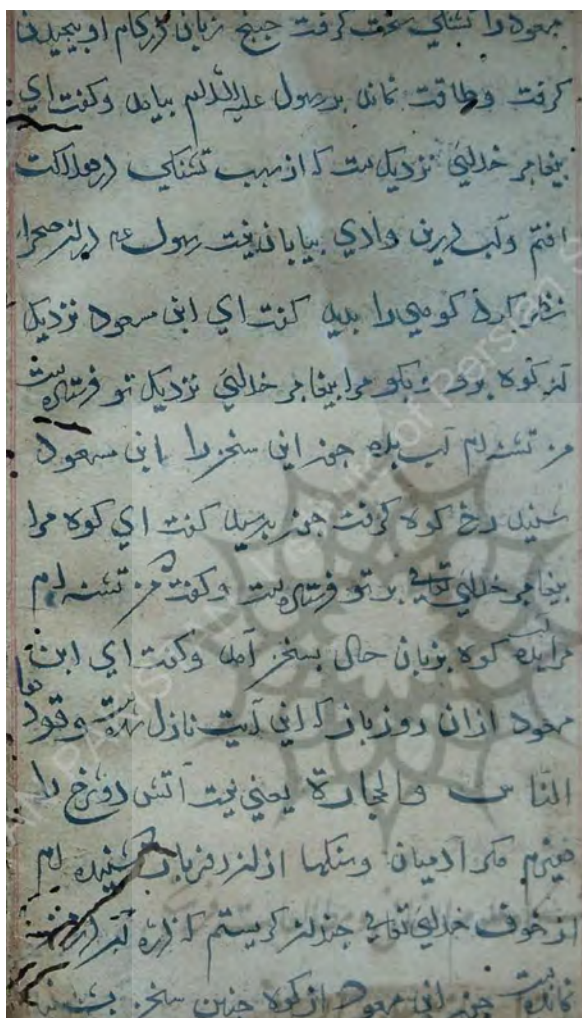 مسعود را تشنکی سخت کرفت جنانج زبان در کام او بیجیدن
کرفت و طاقت نماند بر رسول علیه السلام بیامد و کفت ای
بیغامبر خدای نزدیک ست که از سبب تشنکی در هلاکت
افتم و آب درین وادی بیابان نیست رسول عم در آن صحرا
نظر کرد کوهی را بدید کفت ای ابن مسعود نزدیک
آن کوه برو و بکو مرا بیغامبر خدای نزدیک تو فرستاده ست
من تشنه ام آب بده جون این سخن را ابن مسعود
شنید رخ کوه کرفت جون برسید کفت ای کوه مرا
بیغامبر خدای تعالی بر تو فرستاده ست و کفت من تشنه ام
مرا آب ده کوه بزبان حال بسخن آمد و کفت ای ابن
مسعود ازان روز باز که این آیت نازل شده وقودها
الناس والحجارة یعنی نیست آتش دوزخ را
هیزم مکر آدمیان و سنکها از آن روز باز شنیده ام
از خوف خدای تعالی جندان کریستم که ذره آب در من
نمانده ست جون ابن مسعود از کوه جنین سخن بشنید